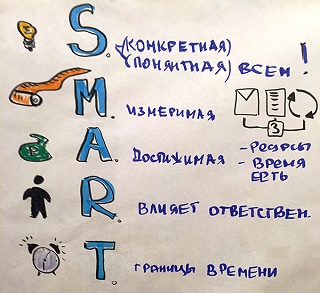 S. (КОНКРЕТНАЯ)
(ПОНЯТНАЯ) ВСЕМ!
M. ИЗМЕРИМАЯ
3
A. ДОСТИЖИМАЯ - РЕСУРСЫ
- ВРЕМЯ
ЕСТЬ
R. ВЛИЯЕТ ОТВЕТСТВЕН.
T. ГРАНИЦЫ ВРЕМЕНИ